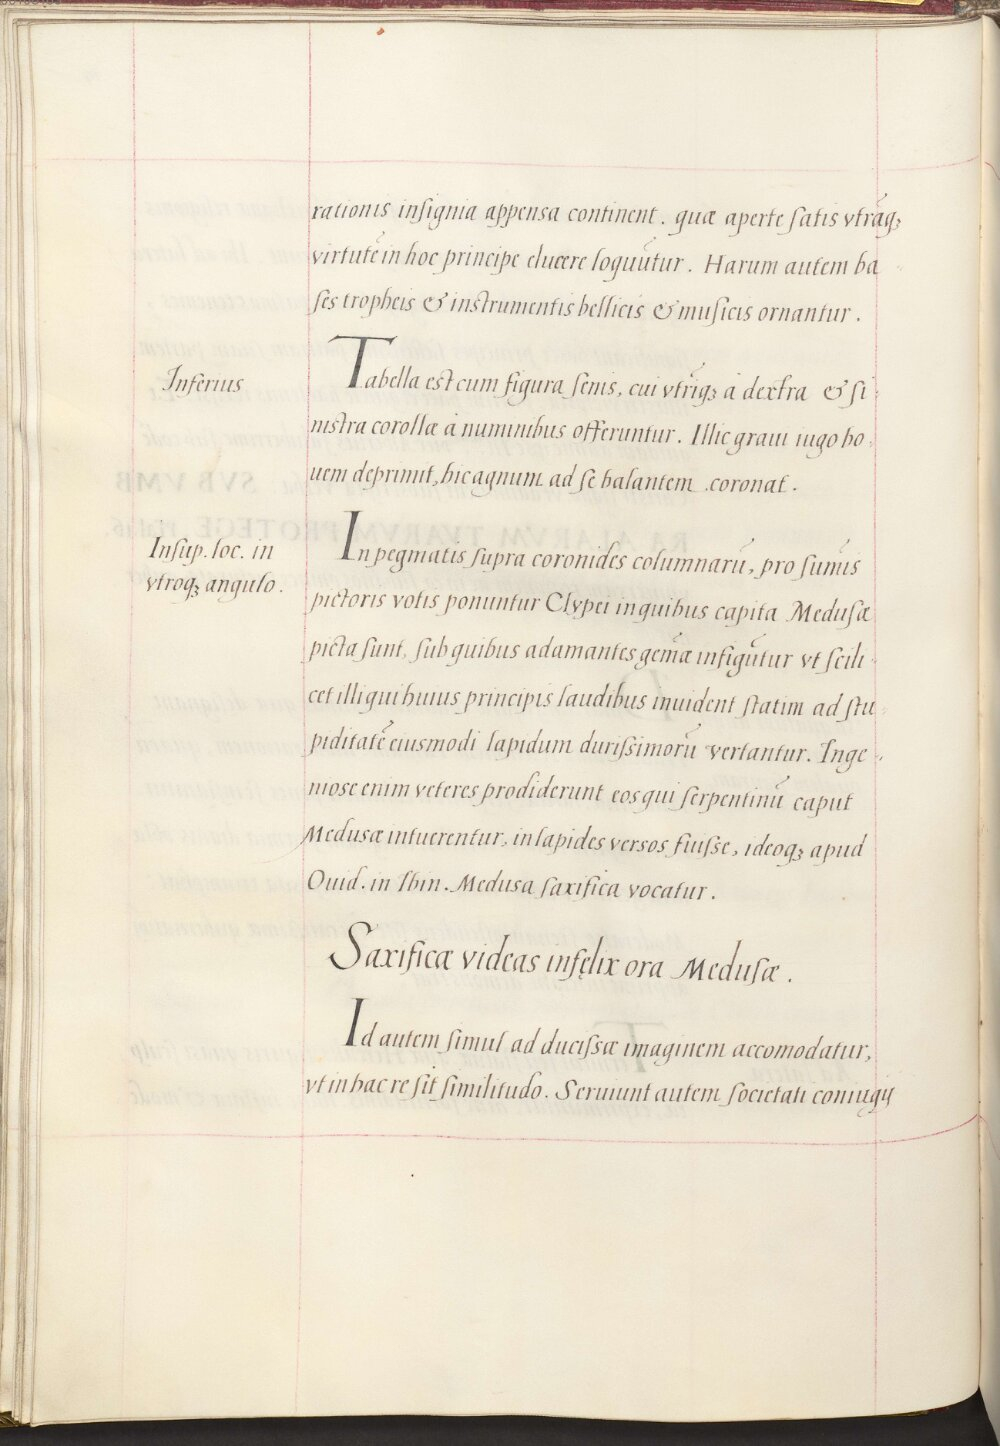 rationis insignia appensa continent. quæ aperte satis vtrāq;
virtutē in hoc principe elucere loquūtur. Harum autem ba
ses tropheis & instrumentis bellicis & musicis ornantur.
Inferius
Tabella est cum figura senis, cui vtrīq; à dextra & si
nistra corollæ à numinibus offeruntur. Illic graui iugo bo
uem deprimit, hic agnum ad se balantem coronat.
Insup. loc. in
vtroq; angulo.
In pegmatis supra coronides columnarū, pro sum̄is
pictoris votis ponuntur Clypei in quibus capita Medusæ
picta sunt, sub quibus adamantes gem̄æ infigūtur vt scili
cet illi qui huius principis laudibus inuident statim ad stu
piditatē eiusmodi lapidum durissimorū vertantur. Inge
niose enim veteres prodiderunt eos qui serpentinū caput
Medusæ intuerentur, in lapides versos fuisse, ideoq; apud
Ouid. in Ibin. Medusa saxifica vocatur.
Saxificæ videas infęlix ora Medusæ.
Id autem simul ad ducissæ imaginem accomodatur,
vt in hac re sit similitudo. Seruiunt autem societati coniugij